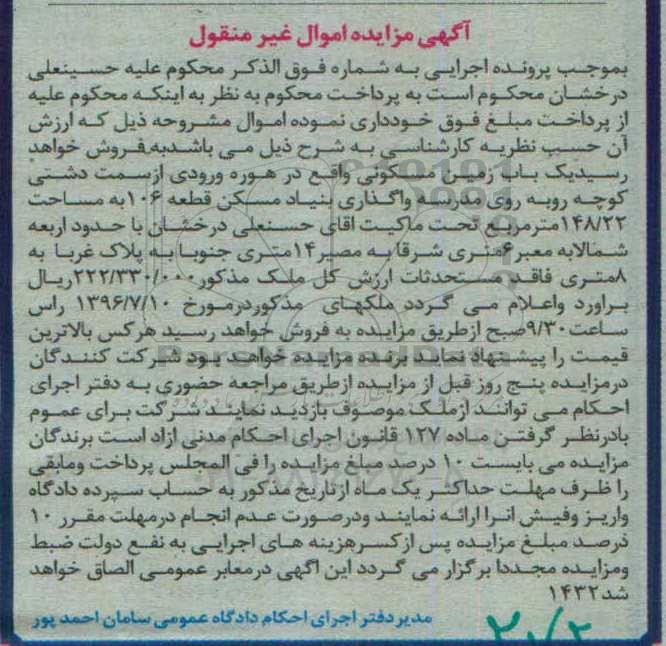 آگهی مزایده اموال غیر منقول
بموجب پرونده اجرایی به شماره فوق الذکر محکوم علیه حسینعلی
درخشان محکوم است به پرداخت محکوم به نظر به اینکه محکوم علیه
از پرداخت مبلغ فوق خودداری نموده اموال مشروحه ذیل که ارزش
آن حسب نظریه کارشناسی به شرح ذیل می باشدبه فروش خواهد
رسیدیک باب زمین مسکونی واقع در هوره ورودی ازسمت دشتی
کوچه روبه روی مدرسه واگذاری بنیاد مسکن قطعه ۱۰۶به مساحت
۱۴۸/۲۲مترمربع تحت مالکیت اقای حسنعلی درخشان با حدود اربعه
شمالابه معبر۶متری شرقا به مصیر۱۴متری جنوبا به پلاک غربا به
۸متری فاقد مستحدثات ارزش کل ملک مذکور۲۲۲/۳۳۰/۰۰۰ریال
براورد واعلام می گردد ملکهای مذکوردرمورخ ۱۳۹۶/۷/۱۰ راس
ساعت۹/۳۰صبح ازطریق مزایده به فروش خواهد رسید هرکس بالاترین
قیمت را پیشنهاد نماید برنده مزایده خواهد بود شرکت کنندگان
درمزایده پنج روز قبل از مزایده ازطریق مراجعه حضوری به دفتر اجرای
احکام می توانند ازملک موصوف بازدید نمایند شرکت برای عموم
بادرنظر گرفتن ماده ۱۲۷ قانون اجرای احکام مدنی ازاد است برندگان
مزایده می بایست ۱۰ درصد مبلغ مزایده را فی المجلس پرداخت ومابقی
را ظرف مهلت حداکثر یک ماه ازتاریخ مذکور به حساب سپرده دادگاه
واریز وفیش انرا ارائه نمایند ودرصورت عدم انجام درمهلت مقرر ۱۰
درصد مبلغ مزایده پس ازکسرهزینه های اجرایی به نفع دولت ضبط
ومزایده مجددا برگزار می گردد این اگهی درمعابر عمومی الصاق خواهد
شد۱۴۳۲
مدیر دفتر اجرای احکام دادگاه عمومی سامان احمد پور
۲۰/۲
ParsNamadData